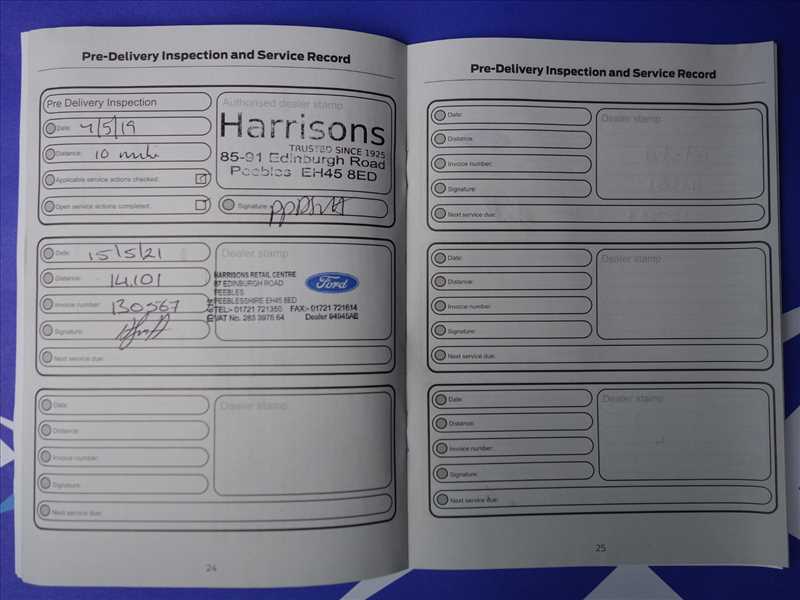 Pre-Delivery Inspection and Service Record
Pre Delivery Inspection
Date: 7/5/19
Distance: 10 mile
Applicable service actions checked:
Open service actions completed:
Authorised dealer stamp
Harrisons
TRUSTED SINCE 1925
85-91 Edinburgh Road
Peebles EH45 8ED
Signature:
Date: 15/5/21
Distance: 14,101
Invoice number: 130567
Signature:
Next service due:
Dealer stamp
HARRISONS RETAIL CENTRE
87 EDINBURGH ROAD
PEEBLES
PEEBLESSHIRE EH45 8ED
TEL:- 01721 721350 FAX:- 01721 721614
VAT No. 263 3975 64 Dealer 94945AB
Ford
Date:
Distance:
Invoice number:
Signature:
Next service due:
Dealer stamp
24
Pre-Delivery Inspection and Service Record
Date:
Distance:
Invoice number:
Signature:
Next service due:
Dealer stamp
Date:
Distance:
Invoice number:
Signature:
Next service due:
Dealer stamp
Date:
Distance:
Invoice number:
Signature:
Next service due:
Dealer stamp
25